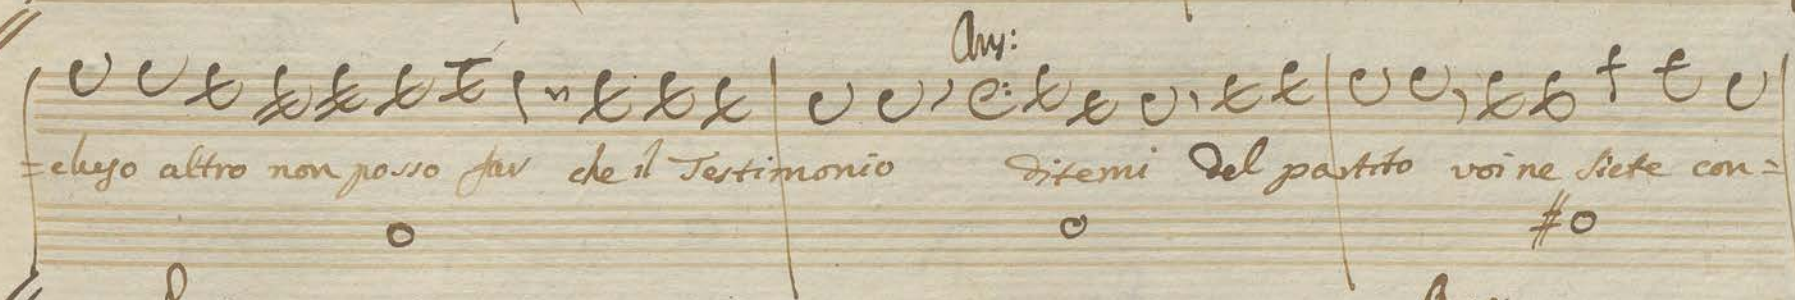 Any:
=cluso altro non posso far che il Testimonio ditemi Del partito voi ne siete con=